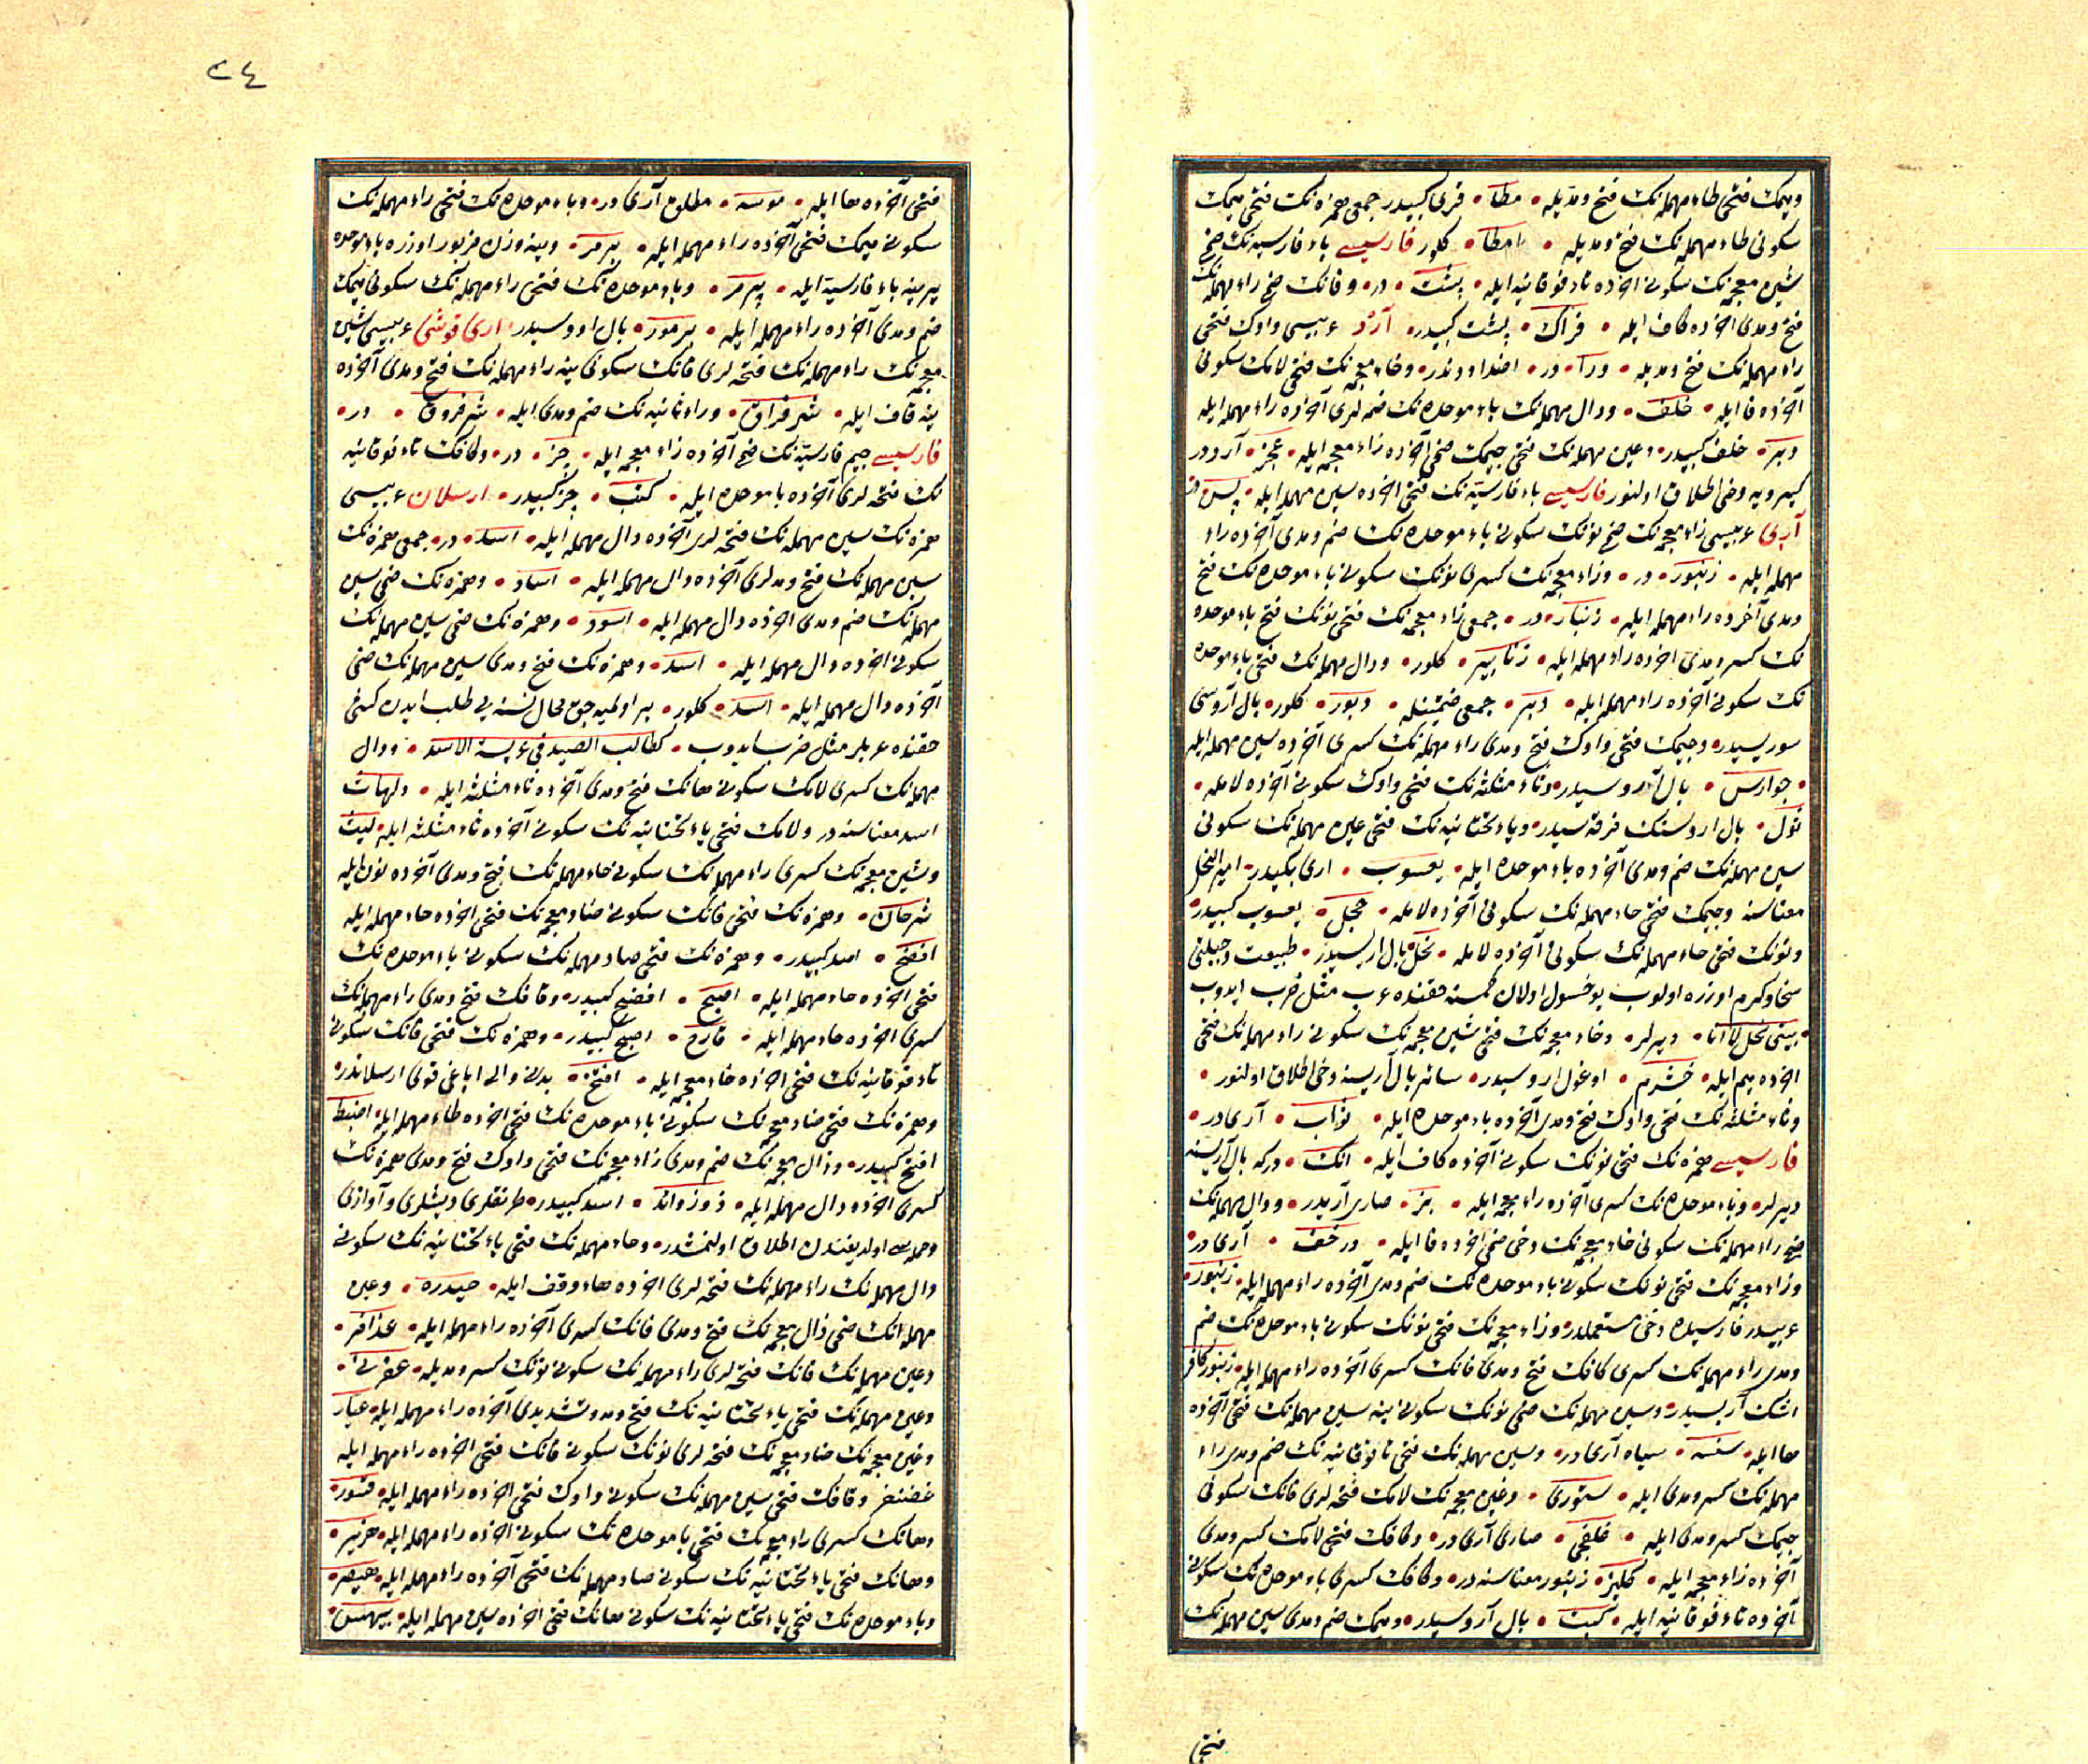 وميمك فتحى طاء مهمله نك فتح ومديله • مطا • قرى كبيدر جمعى همزه نك فتحى ميمك
سكونى طاء مهمله نك فتح ومديله • امطا • كلور فارسيسى باء فارسيه نك ضمى
شين معجمه نك سكونى آخرده تاء فوقانيه ايله • پشت • در • وفانك فتحى راء مهمله نك
فتح ومدى آخرده كاف ايله • فراك • پشت كبيدر • آرد عربيسى واوك فتحى
راء مهمله نك فتح ومديله • ورآ • در • اضداددندر • وخاء معجمه نك فتحى لامك سكونى
آخرده فا ايله • خلف • ودال مهمله نك باء موحده نك ضمه لرى آخرده راء مهمله ايله
دبر • خلف كبيدر • وعين مهمله نك فتحى جيمك ضمى آخرده زاء معجمه ايله • عجز • آرددر
كيرويه دخى اطلاق اولنور فارسيسى باء فارسيه نك فتحى آخرده سين مهمله ايله • پس • در
آرى عربيسى زاء معجمه نك ضمى نونك سكونى باء موحده نك ضم ومدى آخرده راء
مهمله ايله • زنبور • در • وزاء معجمه نك كسرى نونك سكونى باء موحده نك فتح
ومدى آخرده راء مهمله ايله • زنبار • در • جمعى زاء معجمه نك فتحى نونك فتح باء موحده
نك كسر ومدى آخرده راء مهمله ايله • زنابير • كلور • ودال مهمله نك فتحى باء موحده
نك سكونى آخرده راء مهمله ايله • دبر • جمعى ضمتينله • دبور • كلور • بال آروسى
سوريسيدر • وجيمك فتحى واوك فتح ومدى راء مهمله نك كسرى آخرده سين مهمله ايله
• جوارس • بال آروسيدر • وثاء مثلثه نك فتحى واوك سكونى آخرده لامله •
ثول • بال اروسنك فرقه سيدر • وياء تحتانيه نك فتحى عين مهمله نك سكونى
سين مهمله نك ضم ومدى آخرده باء موحده ايله • يعسوب • ارى بكيدر • امير النحل
معناسنه وجيمك فتحى حاء مهمله نك سكونى آخرده لامله • جحل • يعسوب كبيدر
ونونك فتحى حاء مهمله نك سكونى آخرده لامله • نحل • بال اريسيدر • طبيعت وجبلتى
سخا وكرم اوزره اولوب يوخسول اولان كمسنه حقنده عرب مثل ضرب ايدوب
• بيتى نحل لا انا • ديرلر • وخاء معجمه نك فتحى شين معجمه نك سكونى راء مهمله نك فتحى
آخرده ميم ايله • خشرم • اوغول اروسيدر • سائر بال آريسنه دخى اطلاق اولنور •
وثاء مثلثه نك فتحى واوك فتح ومدى آخرده باء موحده ايله • ثواب • آرى در •
فارسيسى همزه نك فتحى نونك سكونى آخرده كاف ايله • انك • دركه بال آريسنه
ديرلر • وباء موحده نك كسرى آخرده زاء معجمه ايله • بز • صارى آريدر • ودال مهمله نك
فتحى راء مهمله نك سكونى خاء معجمه نك دخى ضمى آخرده فا ايله • درخف • آرى در •
وزاء معجمه نك فتحى نونك سكونى باء موحده نك ضم ومدى آخرده راء مهمله ايله • زنبور •
عربيدر فارسيده دخى مستعملدر • وزاء معجمه نك فتحى نونك سكونى باء موحده نك ضم
ومدى راء مهمله نك كسرى كافك فتح ومدى فانك كسرى آخرده راء مهمله ايله • زنبور كافر
اشك آريسيدر • وسين مهمله نك ضمى نونك سكونى ينه سين مهمله نك فتحى آخرده
ها ايله • سنسه • سياه آرى در • وسين مهمله نك فتحى تا فوقانيه نك ضم ومدى راء
مهمله نك كسر ومدى ايله • ستورى • وغين معجمه نك لامك فتحه لرى فانك سكونى
جيمك كسر ومدى ايله • غلفجى • صارى آرى در • وكافك فتحى لامك كسر ومدى
آخرده زاء معجمه ايله • كليز • زنبور معناسنه در • وكافك كسرى باء موحده نك سكونى
آخرده تاء فوقانيه ايله • كبت • بال آروسيدر • وميمك ضم ومدى سين مهمله نك
فتحى
٢٤
فتحى آخرده ها ايله • موسه • مطلوم آرى در • وباء موحده نك فتحى راء مهمله نك
سكونى ميمك فتحى آخرده راء مهمله ايله • برمر • وينه وزن مزبور اوزره باء موحده
يرينه باء فارسيه ايله • پرمر • وباء موحده نك فتحى راء مهمله نك سكونى ميمك
ضم ومدى آخرده راء مهمله ايله • برمور • بال اروسيدر • ارى قوشى عربيسى شين
معجمه نك راء مهمله نك فتحه لرى قانك سكونى ينه راء مهمله نك فتح ومدى آخرده
ينه قاف ايله • شرقراق • وراء ثانيه نك ضم ومدى ايله • شرقروق • در •
فارسيسى جيم فارسيه نك ضمى آخرده زاء معجمه ايله • چز • در • وكافك تاء فوقانيه
نك فتحه لرى آخرده با موحده ايله • كتب • چز كبيدر • ارسلان عربيسى
همزه نك سين مهمله نك فتحه لرى آخرده دال مهمله ايله • اسد • در • جمعى همزه نك
سين مهمله نك فتح ومدلرى آخرده دال مهمله ايله • اساد • وهمزه نك ضمى سين
مهمله نك ضم ومدى آخرده دال مهمله ايله • اسود • وهمزه نك ضمى سين مهمله نك
سكونى آخرده دال مهمله ايله • اسد • وهمزه نك فتح ومدى سين مهمله نك ضمى
آخرده دال مهمله ايله • اسد • كلور • بر اولميه جق محال نسنه يى طلب ايدن كشى
حقنده عربلر مثل ضرب ايدوب • كطالب الصيد فى عريسة الاسد • ودال
مهمله نك كسرى لامك سكونى هانك فتح ومدى آخرده ثاء مثلثه ايله • دلهاث
اسد معناسنه در ولامك فتحى ياء تحتانيه نك سكونى آخرده ثاء مثلثه ايله • ليث
وشين معجمه نك كسرى راء مهمله نك سكونى حاء مهمله نك فتح ومدى آخرده نون ايله
شرحان • وهمزه نك فتحى فانك سكونى ضاد معجمه نك فتحى آخرده حاء مهمله ايله
افضح • اسد كبيدر • وهمزه نك فتحى صاد مهمله نك سكونى باء موحده نك
فتحى آخرده حاء مهمله ايله • اصبح • افضح كبيدر • وقافك فتح ومدى راء مهمله نك
كسرى آخرده حاء مهمله ايله • قارح • اصبح كبيدر • وهمزه نك فتحى فانك سكونى
تاء فوقانيه نك فتحى آخرده خاء معجمه ايله • افتخ • بدنى والى اياغى قوى ارسلاندر •
وهمزه نك فتحى ضاد معجمه نك سكونى باء موحده نك فتحى آخرده طاء مهمله ايله • اضبط
افتخ كبيدر • وذال معجمه نك ضم ومدى زاء معجمه نك فتحى واوك فتح ومدى همزه نك
كسرى آخرده دال مهمله ايله • ذوزوائد • اسد كبيدر • طرنقلرى وديشلرى وآوازى
وحمله سى اولديغندن اطلاق اولنمشدر • وحاء مهمله نك فتحى ياء تحتانيه نك سكونى
دال مهمله نك راء مهمله نك فتحه لرى آخرده هاء وقف ايله • حيدره • وعين
مهمله نك ضمى ذال معجمه نك فتح ومدى فانك كسرى آخرده راء مهمله ايله • عذافر •
وعين مهمله نك فانك فتحه لرى راء مهمله نك سكونى نونك كسر ومديله • عفرنى •
وعين مهمله نك فتحى ياء تحتانيه نك فتح ومد وتشديدى آخرده راء مهمله ايله • عيار
وغين معجمه نك ضاد معجمه نك فتحه لرى نونك سكونى فانك فتحى آخرده راء مهمله ايله
غضنفر وقافك فتحى سين مهمله نك سكونى واوك فتحى آخرده راء مهمله ايله • قسور •
وهانك كسرى زاء معجمه نك فتحى با موحده نك سكونى آخرده راء مهمله ايله • هزبر •
وهانك فتحى ياء تحتانيه نك سكونى صاد مهمله نك فتحى آخرده راء مهمله ايله • هيصر •
وباء موحده نك فتحى ياء تحتانيه نك سكونى هانك فتحى آخرده سين مهمله ايله • بيهس •